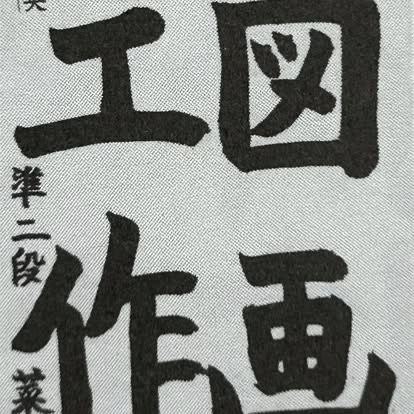 図画
工作
準二段 菜